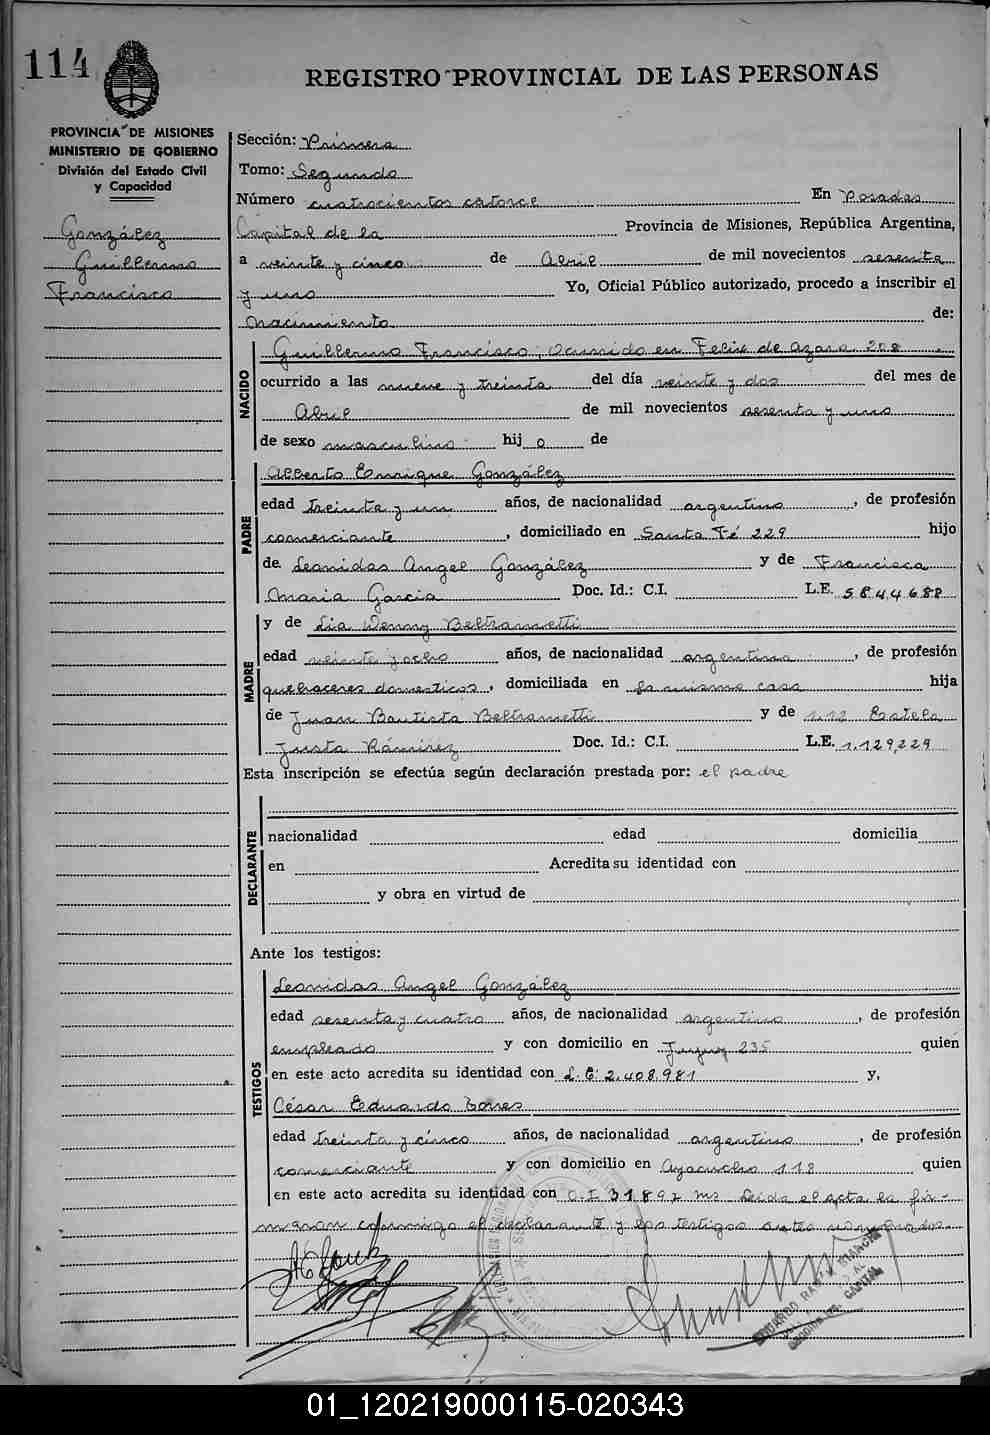 114
REGISTRO PROVINCIAL DE LAS PERSONAS
PROVINCIA DE MISIONES
MINISTERIO DE GOBIERNO
División del Estado Civil
y Capacidad
González
Guillermo
Francisco
Sección: Primera
Tomo: Segundo
Número cuatrocientos catorce En Posadas
Capital de la Provincia de Misiones, República Argentina,
a veinte y cinco de Abril de mil novecientos sesenta
y uno Yo, Oficial Público autorizado, procedo a inscribir el
Nacimiento de:
NACIDO
Guillermo Francisco, Ocurrido en Felix de Azara 208
ocurrido a las nueve y treinta del día veinte y dos del mes de
Abril de mil novecientos sesenta y uno
de sexo masculino hij o de
PADRE
Alberto Enrique González
edad treinta y un años, de nacionalidad argentino, de profesión
comerciante, domiciliado en Santa Fé 229 hijo
de Leonidas Angel González y de Francisca
Maria Garcia Doc. Id.: C.I. L.E. 5844688
MADRE
y de Lia Wenny Beltrametti
edad veinte y ocho años, de nacionalidad argentina, de profesión
quehaceres domesticos, domiciliada en la misma casa hija
de Juan Bautista Beltrametti y de Estela
Justa Rámirez Doc. Id.: C.I. L.E. 1.129,229
Esta inscripción se efectúa según declaración prestada por: el padre
DECLARANTE
nacionalidad edad domicilia
en Acredita su identidad con
y obra en virtud de
Ante los testigos:
TESTIGOS
Leonidas Angel González
edad sesenta y cuatro años, de nacionalidad argentino, de profesión
empleado y con domicilio en Jujuy 235 quien
en este acto acredita su identidad con L.E. 2.408.981 y,
César Eduardo Torres
edad treinta y cinco años, de nacionalidad argentino, de profesión
comerciante y con domicilio en Ayacucho 118 quien
en este acto acredita su identidad con C.I 31892 ms Leida el acta la fir-
maron conmigo el declarante y los testigos antes nombrados.
01_120219000115-020343